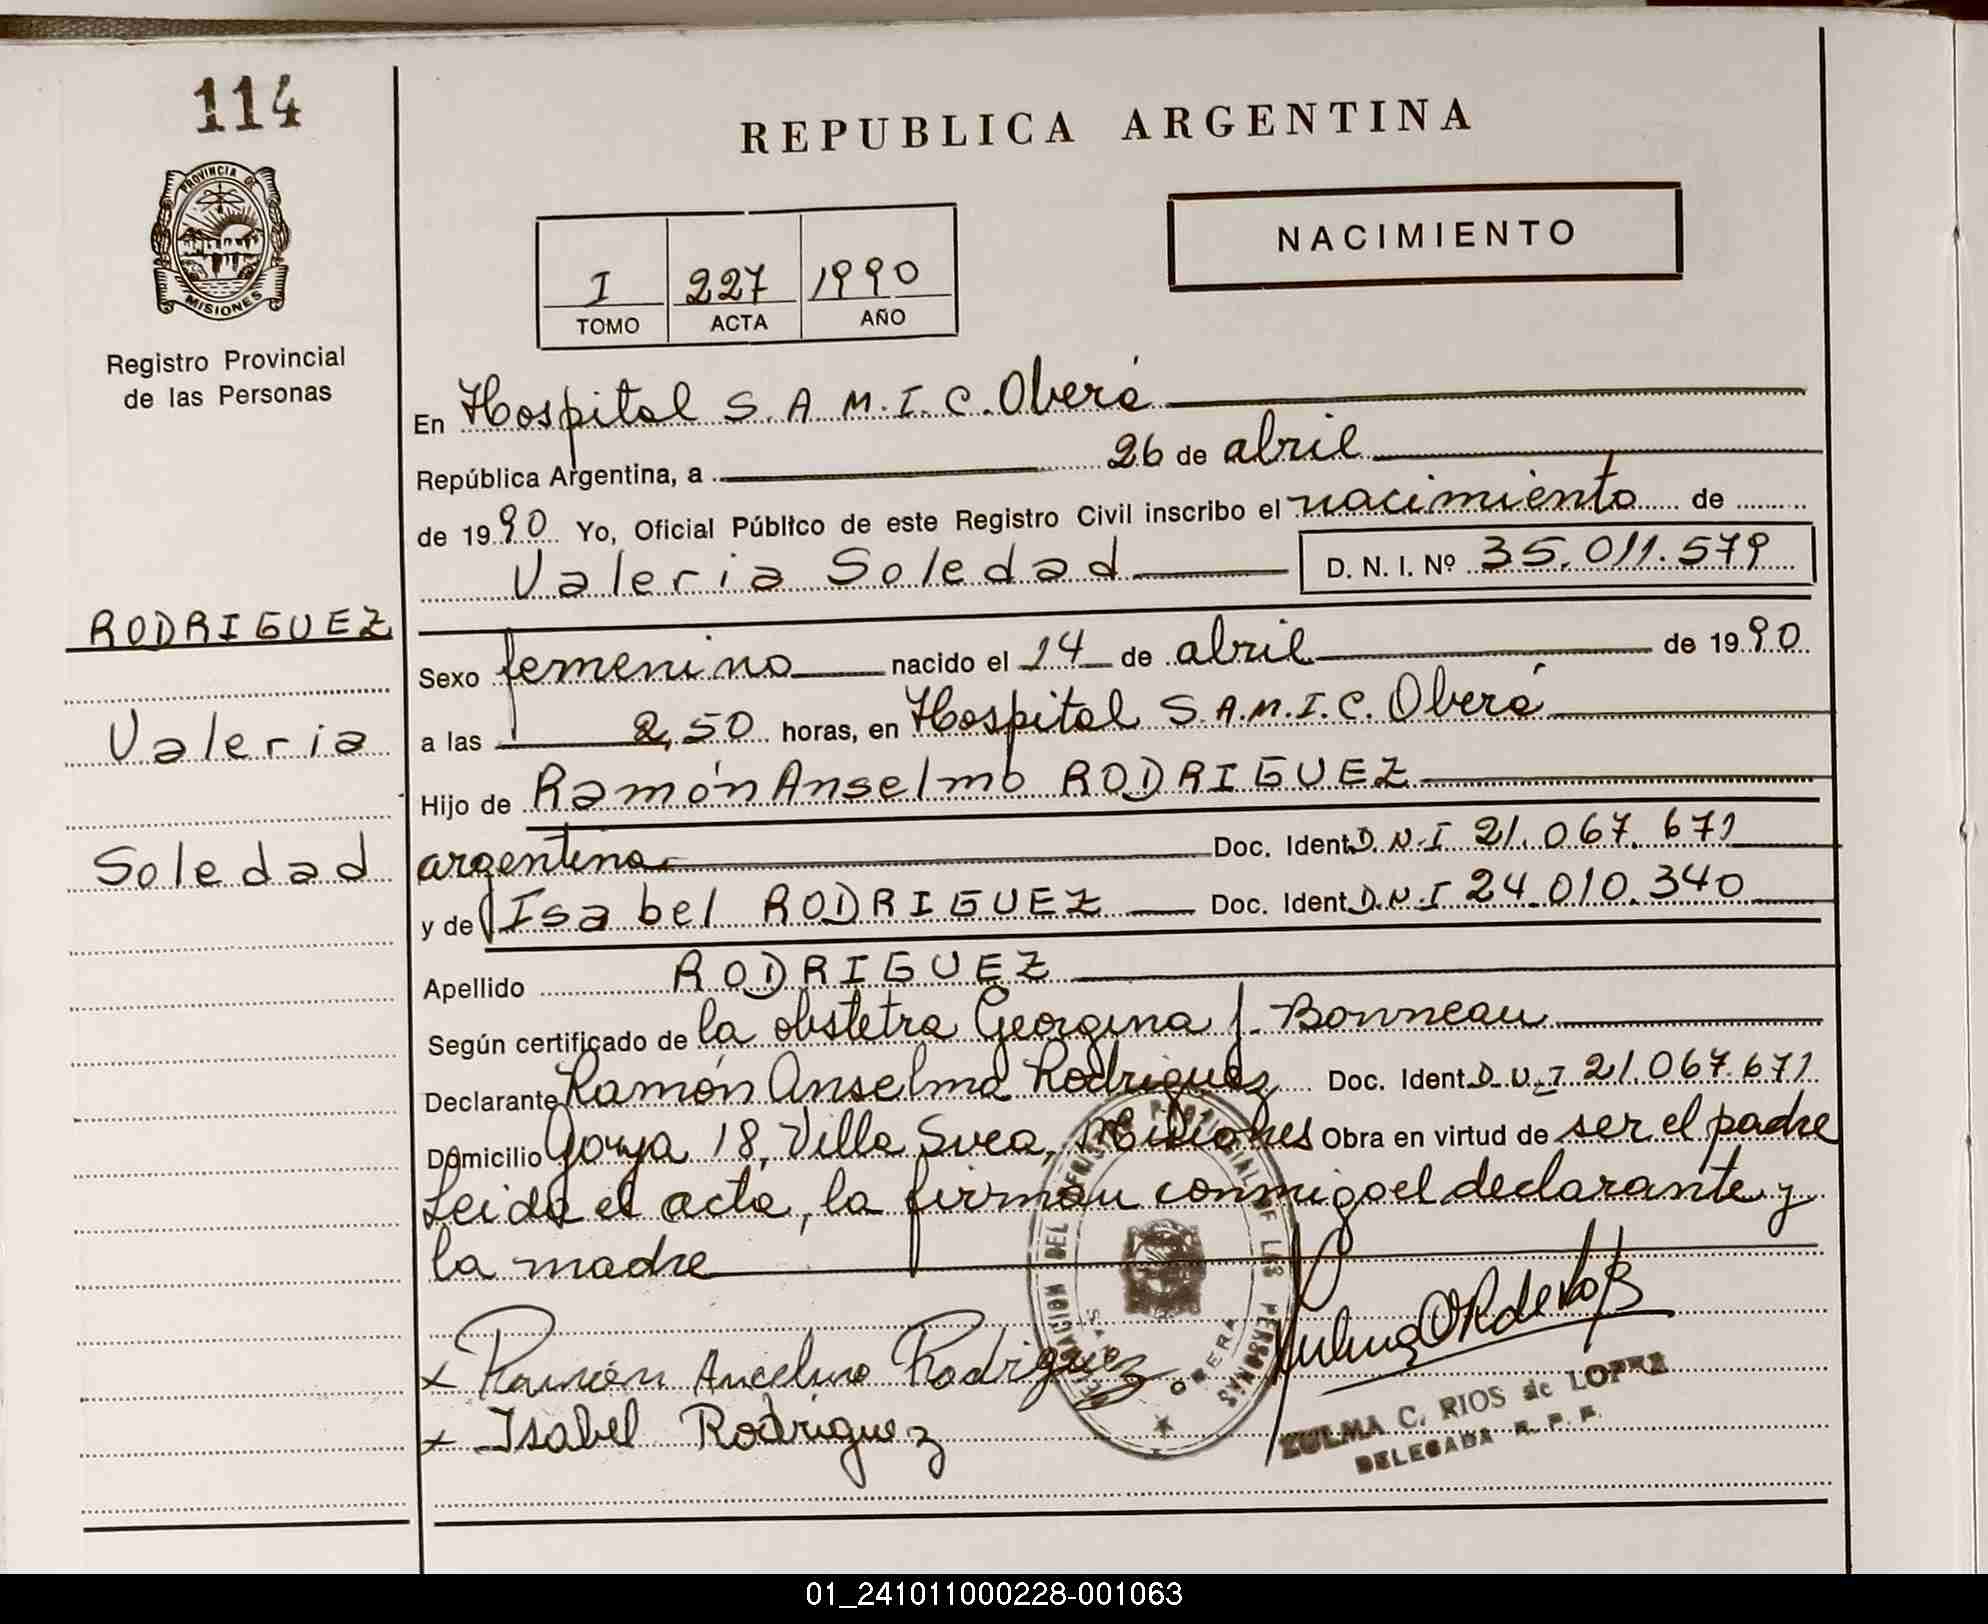 114
PROVINCIA DE
MISIONES
Registro Provincial
de las Personas
RODRIGUEZ
Valeria
Soledad
REPUBLICA ARGENTINA
NACIMIENTO
I 227 1990
TOMO ACTA AÑO
En Hospital S.A.M.I.C. Oberá
República Argentina, a 26 de abril
de 1990 Yo, Oficial Público de este Registro Civil inscribo el nacimiento de
Valeria Soledad D. N. I. Nº 35.011.579
Sexo femenino nacido el 14 de abril de 1990
a las 2,50 horas, en Hospital S.A.M.I.C. Oberá
Hijo de Ramón Anselmo RODRIGUEZ
argentina Doc. Ident D.N.I 21.067.671
y de Isabel RODRIGUEZ Doc. Ident D.N.I 24.010.340
Apellido RODRIGUEZ
Según certificado de la obstetra Georgina J. Bonneau
Declarante Ramón Anselmo Rodriguez Doc. Ident D.N.I 21.067.671
Domicilio Goya 18, Villa Svea, Misiones Obra en virtud de ser el padre
Leida el acta, la firman conmigo el declarante y
la madre
x Ramón Ancelmo Rodriguez
x Isabel Rodriguez
DELEGACION DEL REGISTRO PROVINCIAL DE LAS PERSONAS
OBERA
ZULMA C. RIOS de LOPEZ
DELEGADA R. P. P.
01_241011000228-001063